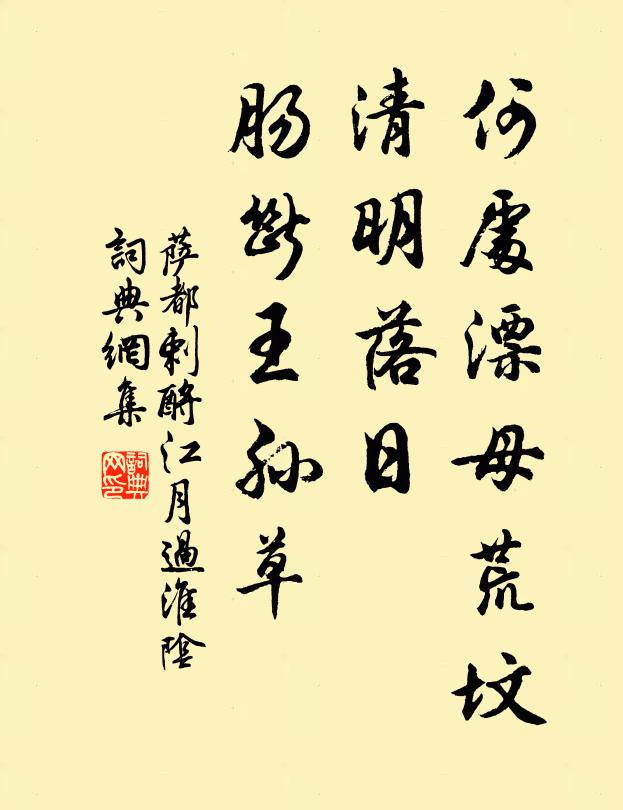 何處漂母荒坟
清明落日
肠斷王孙草
萨都剌酹江月過淮陰
詞典網集
詞典网印